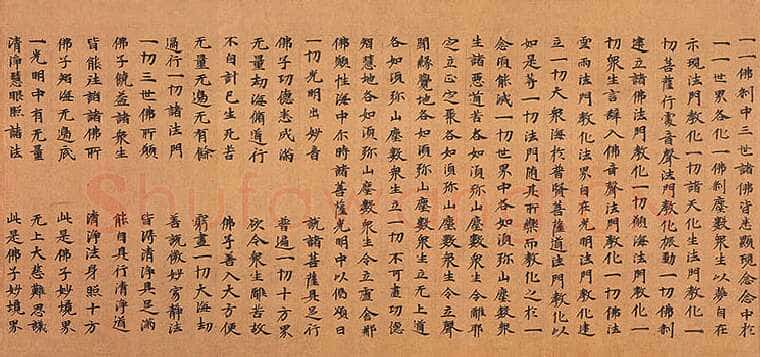 一一佛剎中三世諸佛皆悉顯現念念中於
一一世界各化一佛剎塵數眾生以夢自在
示現法門教化一切諸天化生法門教化一
切菩薩行處音聲法門教化振動一切佛剎
建立諸佛法門教化一切願海法門教化一
切眾生言辭入佛音聲法門教化一切佛法
雲雨法門教化法界自在光明法門教化建
立一切大眾海於普賢菩薩道法門教化以
如是等一切法門隨其所樂而教化之於一
念頃能滅一切世界中各如須彌山塵數眾
生諸惡道苦各如須彌山塵數眾生令離耶
定立正定之聚各如須彌山塵數眾生令立聲
聞緣覺地各如須彌山塵數眾生立无上道
各如須彌山塵數眾生立一切不可盡功德
智慧地各如須彌山塵數眾生令立盧舍那
佛願性海中尒時諸菩薩光明中以偈頌曰
一切光明出妙音 說諸菩薩具足行
佛子功德悉成滿 普遍一切十方界
无量劫海脩道行 欲令眾生離苦故
不自計己生死苦 佛子善入大方便
无量无邊无有餘 窮盡一切大海劫
遍行一切諸法門 善說微妙寂靜法
一切三世佛所願 皆得清淨具足滿
佛子饒益諸眾生 能自具行清淨道
皆能往詣諸佛所 清淨法身照十方
佛子智海无邊底 此是佛子妙境界
一光明中有无量 无上大悲難思議
清淨慧眼照諸法 此是佛子妙境界